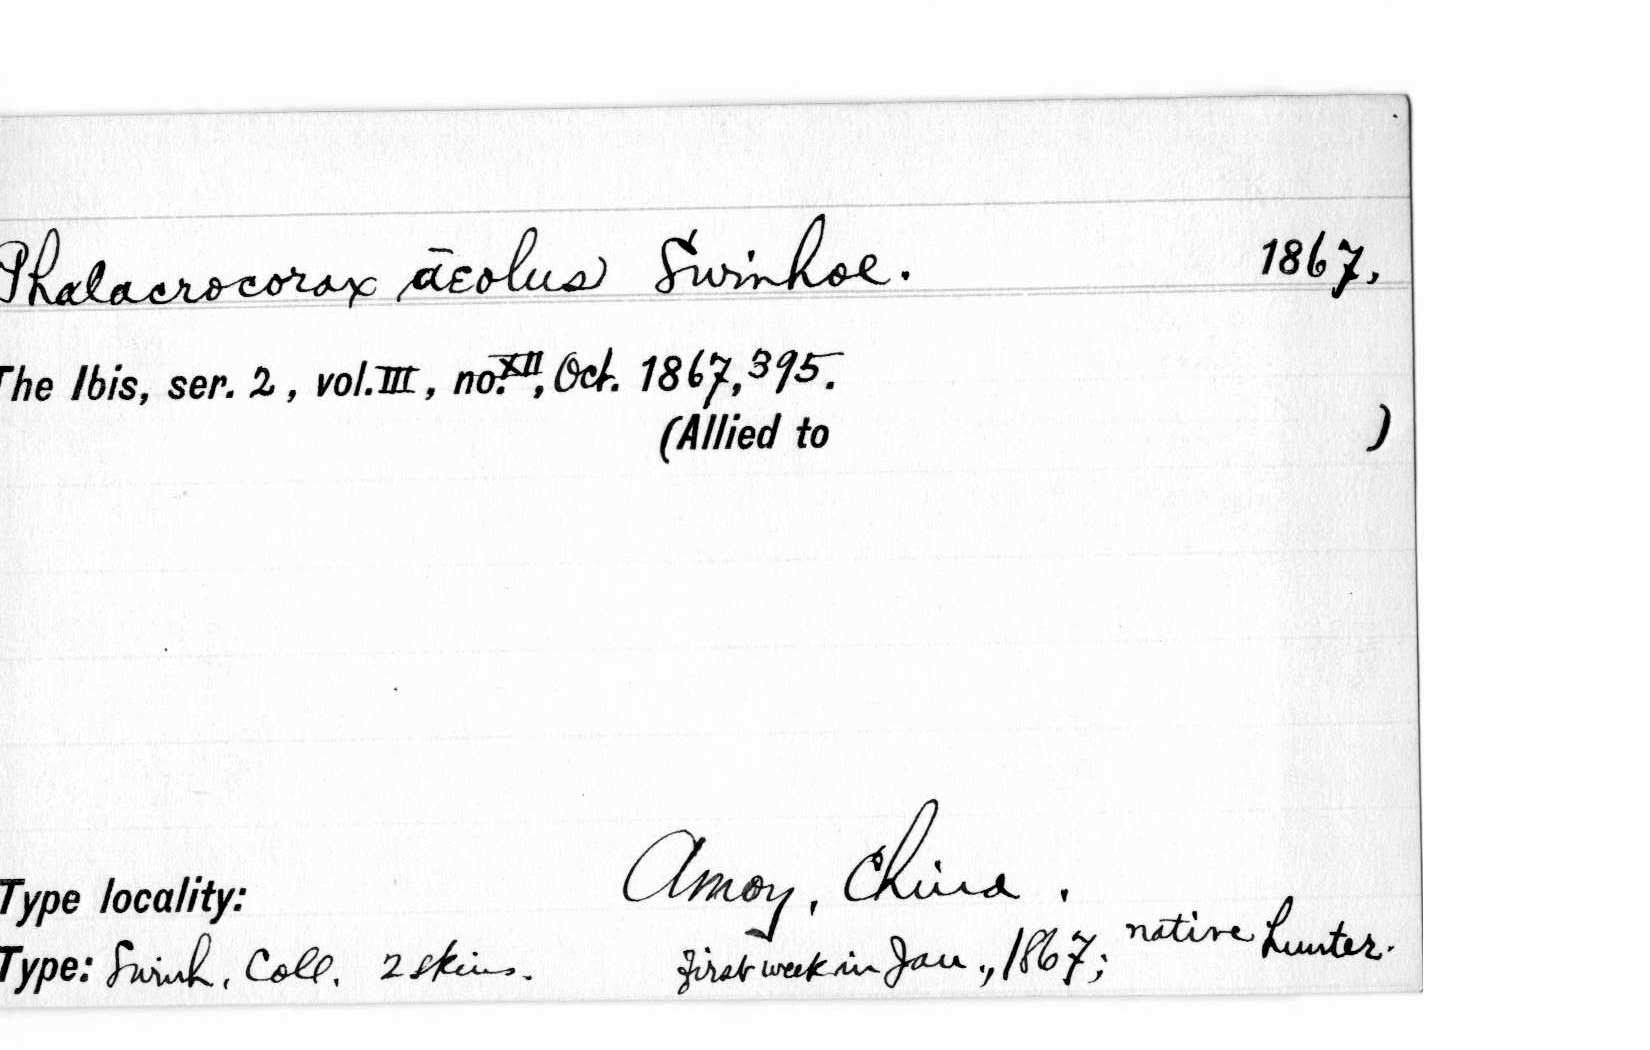 Phalacrocorax āeolus Swinhoe. 1867,
The Ibis, ser. 2, vol. III, no. XII, Oct. 1867, 395.
(Allied to )
Type locality: Amoy, China.
Type: Swinh. Coll. 2 skins. first week in Jan., 1867; native hunter.